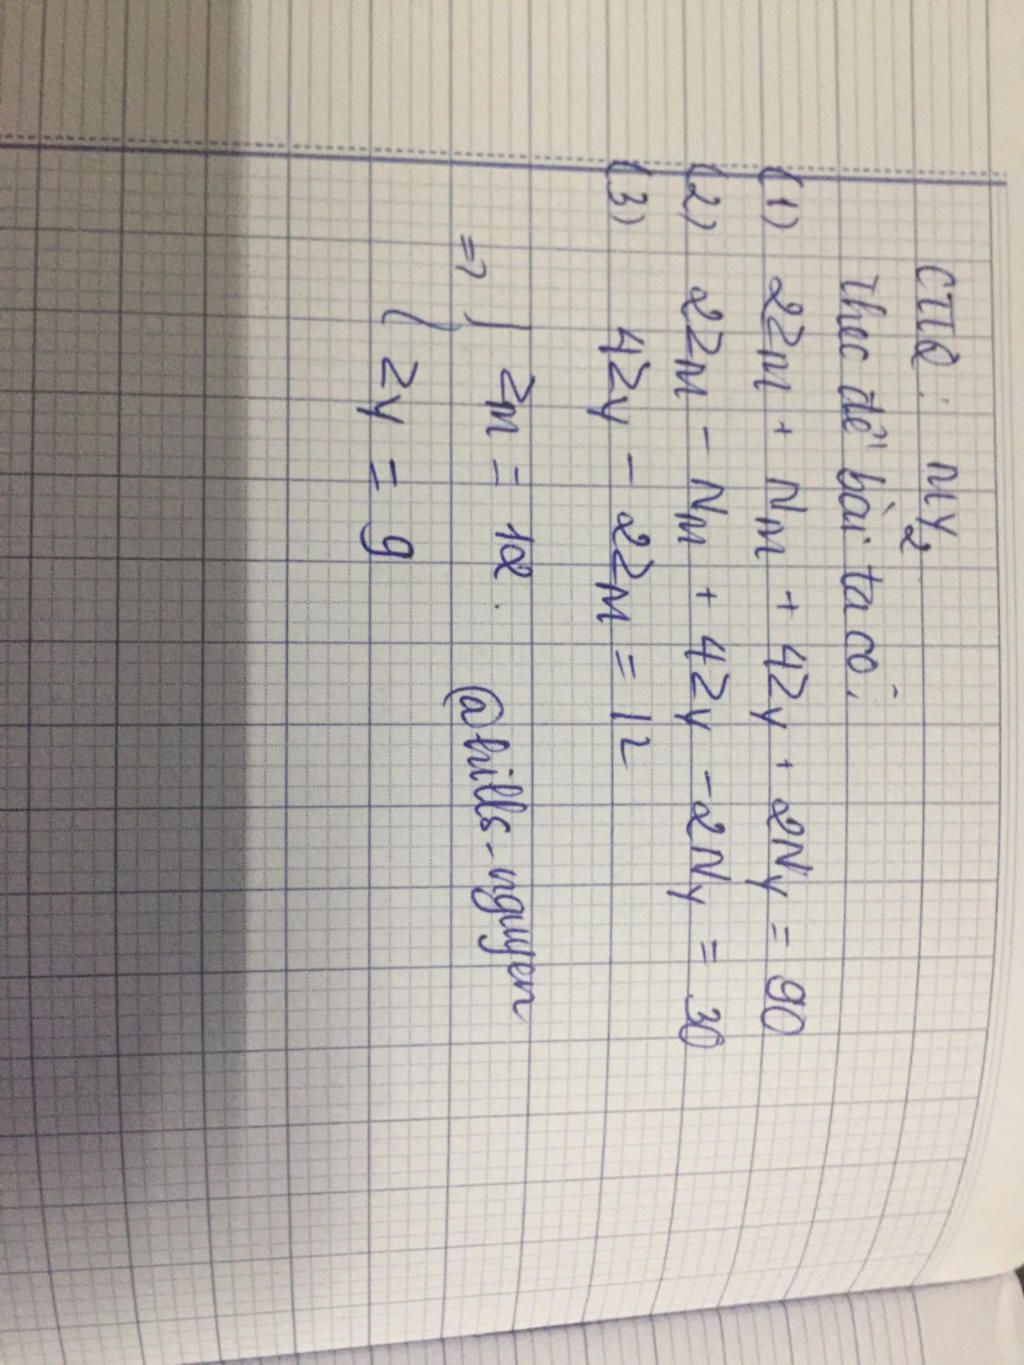 CTTQ: MY₂
theo đề bài ta có:
(1) 2ZM + NM + 4Zy + 2Ny = 90
(2) 2ZM - NM + 4Zy - 2Ny = 30
(3) 4Zy - 2ZM = 12
=> { ZM = 12.
{ Zy = 9
@hills-nguyen